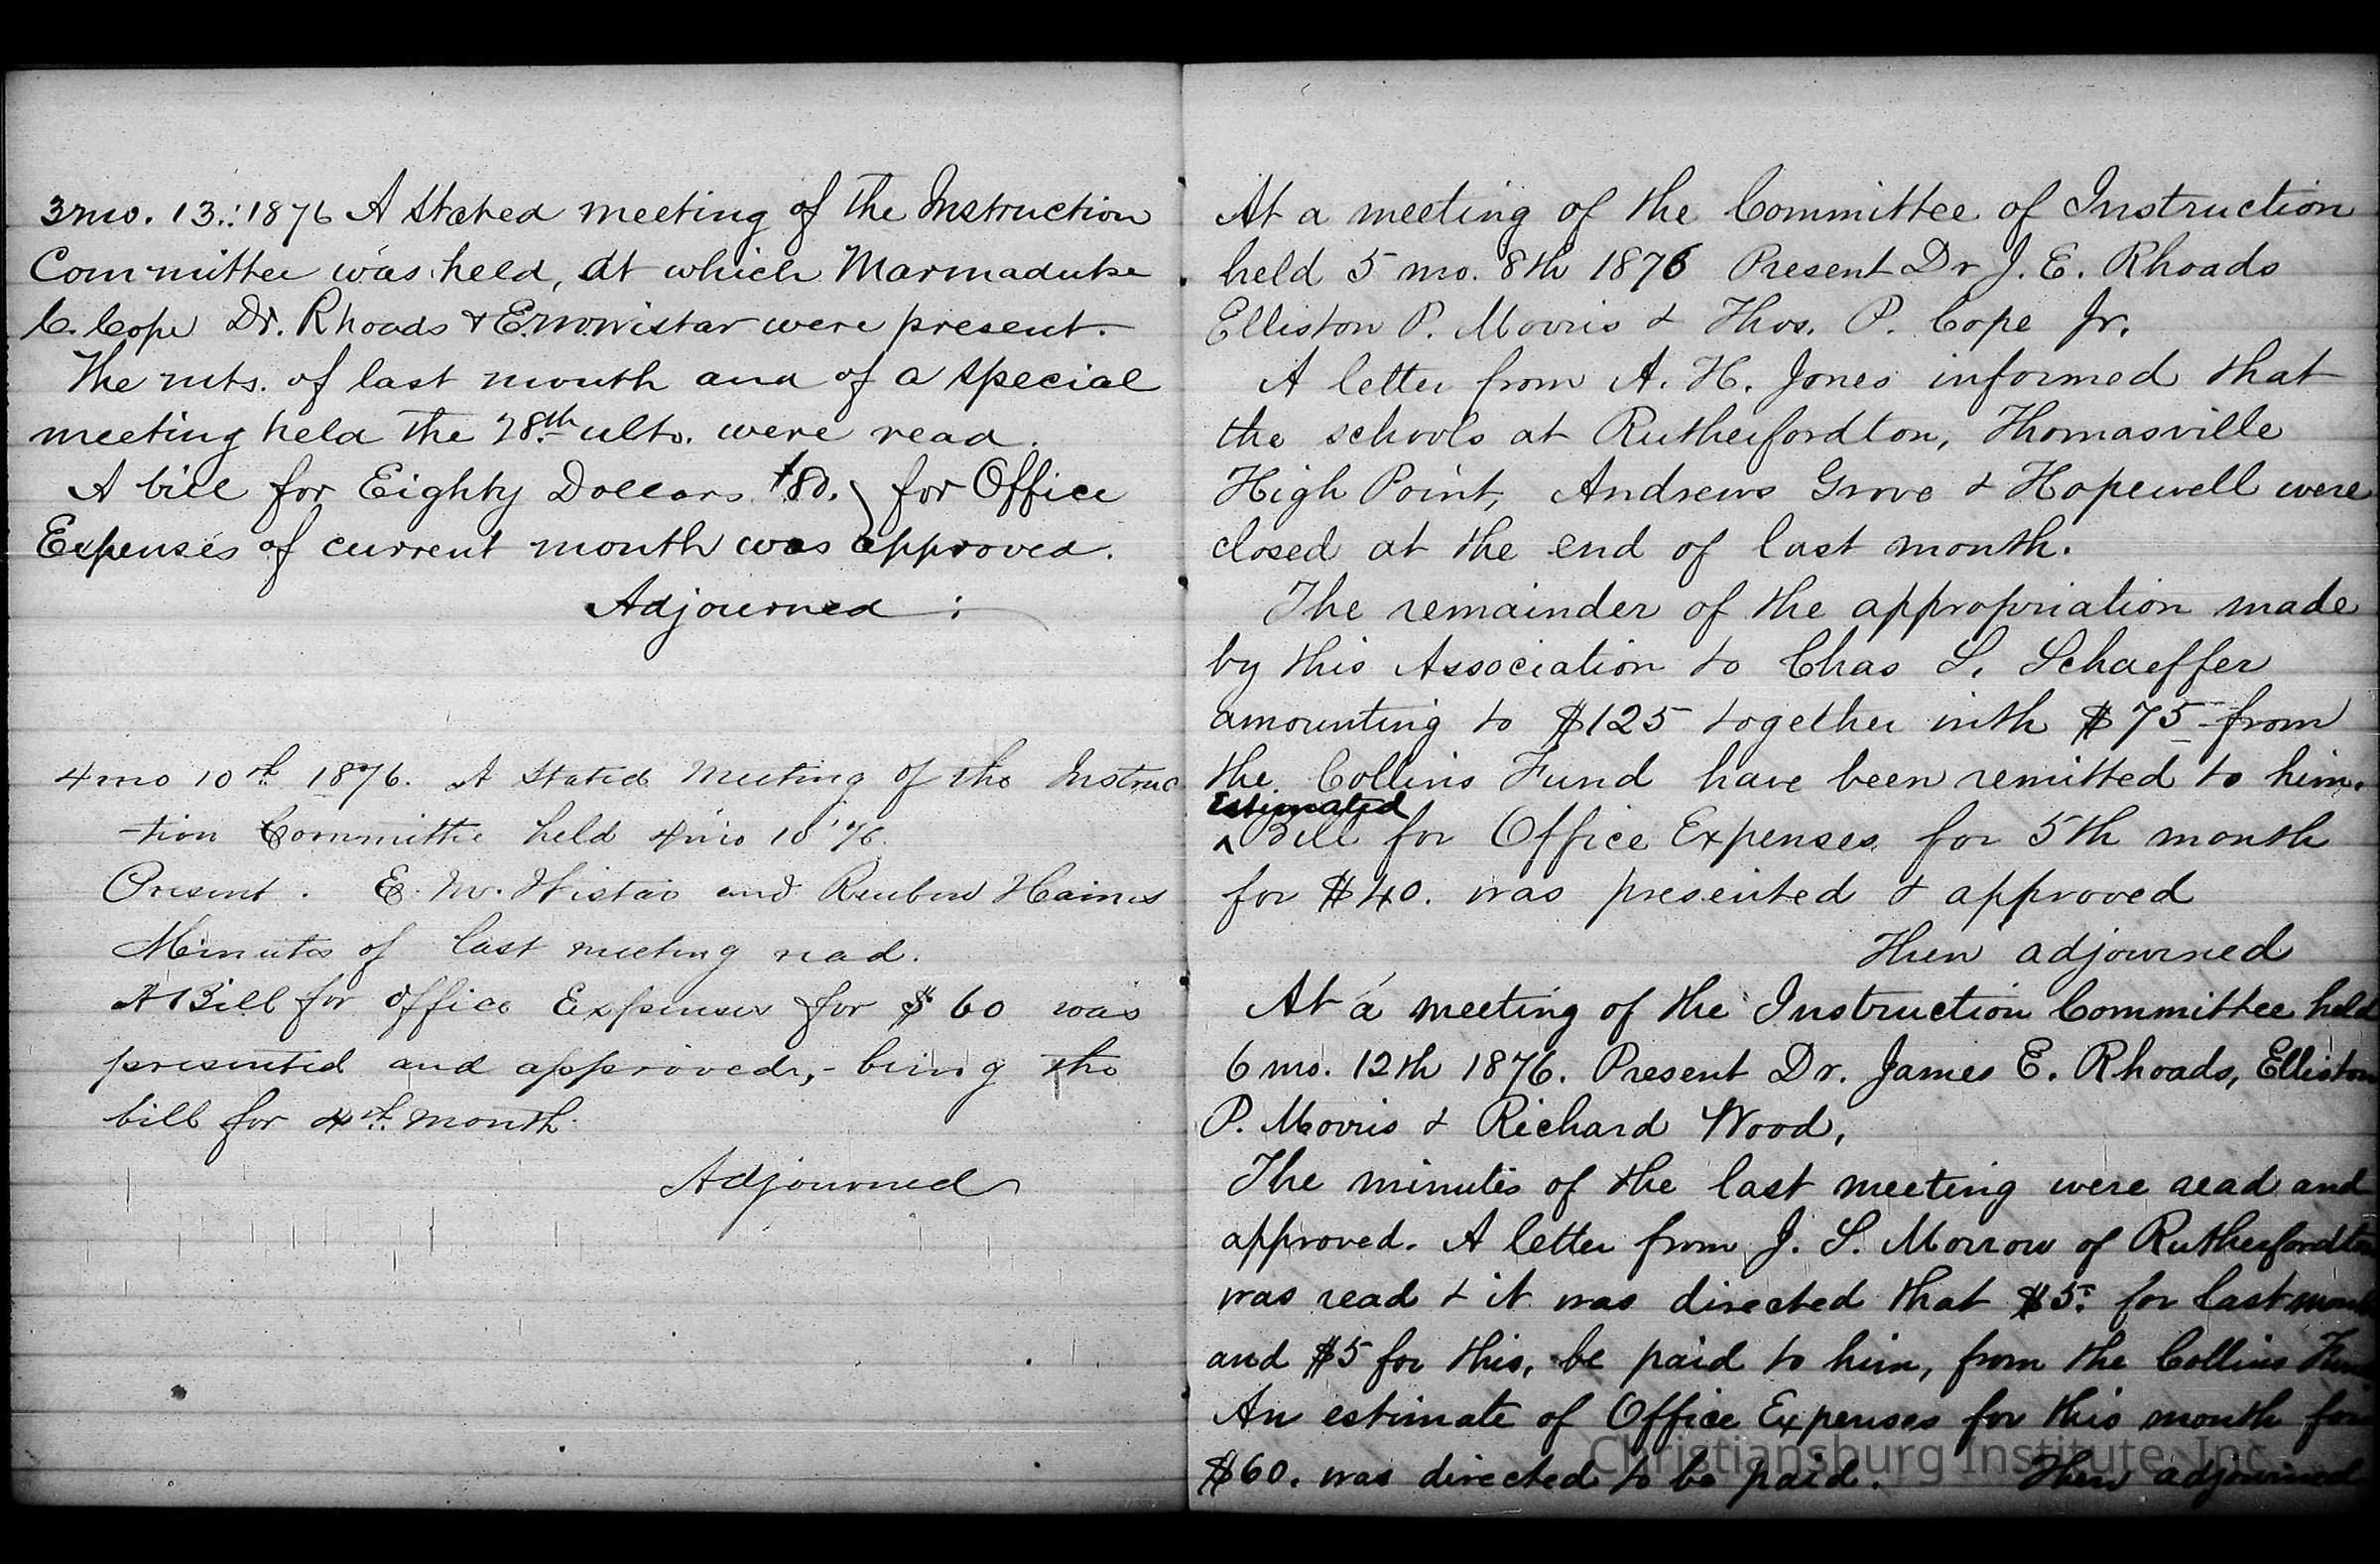 3 mo. 13.: 1876 A Stated meeting of the Instruction
Committee was held, at which Marmaduke
C. Cope Dr. Rhoads & E. M. Wistar were present.
The mts. of last month and of a special
meeting held the 28th ulto. were read.
A bill for Eighty Dollars $80. for Office
Expenses of current month was approved.
Adjourned:
4 mo 10th 1876. A Stated Meeting of the Instruc
-tion Committee held 4 mo 10 '76.
Present. E. M. Wistar and Reuben Haines
Minutes of last meeting read.
A Bill for Office Expenses for $60 was
presented and approved,- being the
bill for 4th month.
Adjourned
At a meeting of the Committee of Instruction
held 5 mo. 8th 1876 Present Dr J. E. Rhoads
Elliston P. Morris & Thos. P. Cope Jr.
A letter from A. H. Jones informed that
the schools at Rutherfordton, Thomasville
High Point, Andrews Grove & Hopewell were
closed at the end of last month.
The remainder of the appropriation made
by this Association to Chas S. Schaeffer
amounting to $125 together with $75 from
the Collins Fund have been remitted to him.
Estimated
^ Bill for Office Expenses for 5th month
for $40. was presented & approved
Then adjourned
At a meeting of the Instruction Committee held
6 mo. 12th 1876. Present Dr. James E. Rhoads, Elliston
P. Morris & Richard Wood,
The minutes of the last meeting were read and
approved. A letter from J. S. Morrow of Rutherfordton
was read & it was directed that $5. for last month
and $5 for this, be paid to him, from the Collins Fund
An estimate of Office Expenses for this month for
$60. was directed to be paid. Then adjourned
Christiansburg Institute, Inc.